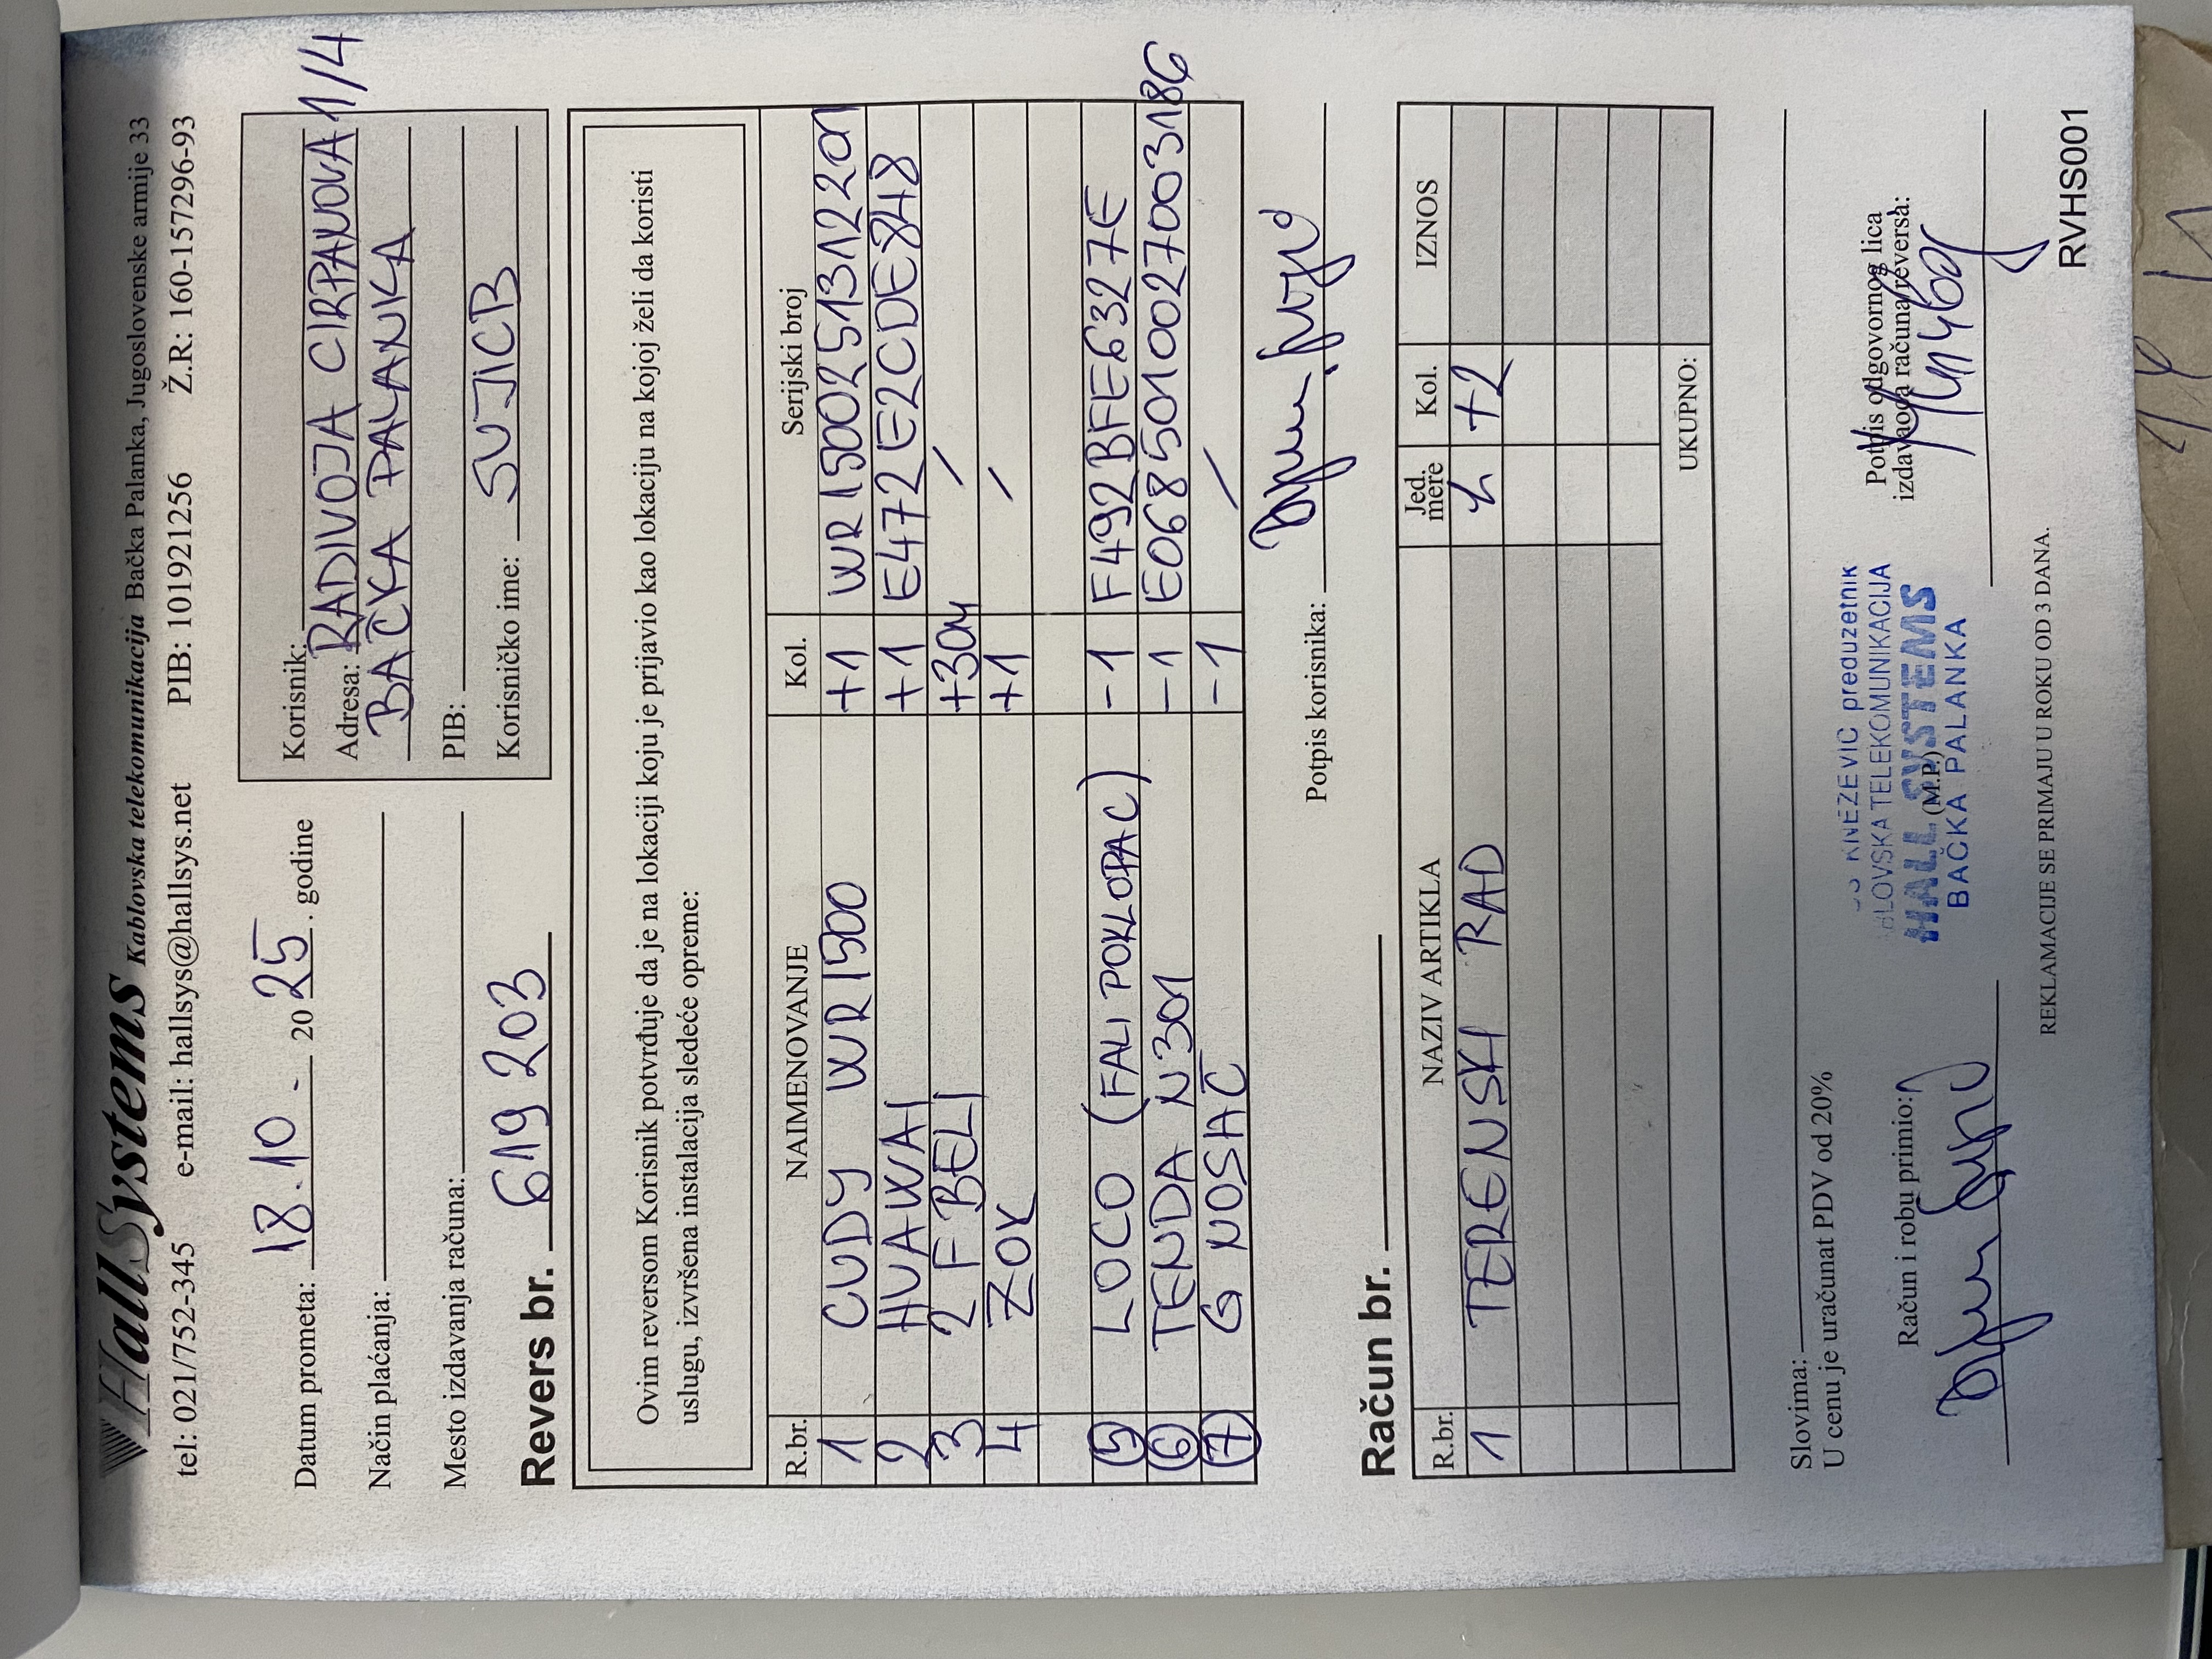 HallSystems Kablovska telekomunikacija Bačka Palanka, Jugoslovenske armije 33
tel: 021/752-345 e-mail: hallsys@hallsys.net PIB: 101921256 Ž.R: 160-157296-93
Datum prometa: 18.10 - 2025. godine
Način plaćanja:
Mesto izdavanja računa:
Revers br. 619 203
Korisnik:
Adresa: RADIVOJA CIRPANOVA 1/4
BAČKA PALANKA
PIB:
Korisničko ime: SUJICB
Ovim reversom Korisnik potvrđuje da je na lokaciji koju je prijavio kao lokaciju na kojoj želi da koristi
uslugu, izvršena instalacija sledeće opreme:
R.br. NAIMENOVANJE Kol. Serijski broj
1 CUDY WR1500 +1 WR1500251312201
2 HUAWAI +1 E472E2CDE848
3 2 F BELI +30m /
4 ZOK +1 /
5 LOCO (FALI POKLOPAC) -1 F492BFE6327E
6 TENDA N301 -1 E0685010027003186
7 G NOSAČ -1 /
Potpis korisnika:
Račun br.
R.br. NAZIV ARTIKLA Jed. mere Kol. IZNOS
1 TERENSKI RAD h +2
UKUPNO:
Slovima:
U cenu je uračunat PDV od 20%
Račun i robu primio:
KNEZEVIC preduzetnik
KABLOVSKA TELEKOMUNIKACIJA
HALL SYSTEMS
(M.P.)
BAČKA PALANKA
Potpis odgovornog lica
izdavaoca računa/reversa:
REKLAMACIJE SE PRIMAJU U ROKU OD 3 DANA.
RVHS001